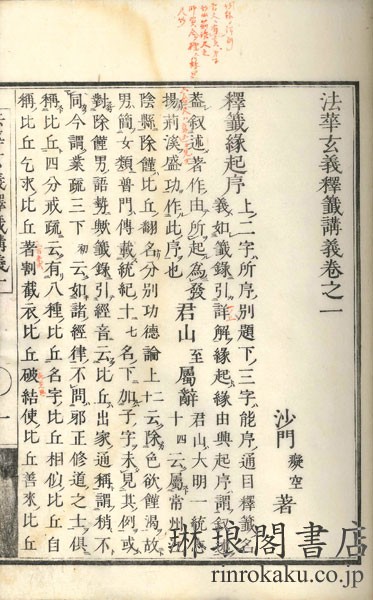 法華玄義釋籤講義卷之一
沙門 癡空 著
釋籤緣起序 上二字所序別題下三字能序通目釋籤名
義如籤錄引詳解緣起緣由興起序謂叙述
蓋叙述著作由所起為發 君山 至 屬辭 君山大明一統志
揚荊溪盛功作此序也 十四云屬常州江
陰縣除饉比丘翻名分別功德論上十二云除色欲饉渴故
男簡女類普門傳載統紀十七名下加子字未見其例或
對除饉男語勢歟籤錄引經音云比丘出家通稱謂稍不
同今謂業疏三下初云如諸經律不問邪正修道之士俱
稱比丘四分戒疏云有八種比丘名字比丘相似比丘自
稱比丘乞求比丘著割截衣比丘破結使比丘善來比丘
琳琅閣書店
rinrokaku.co.jp